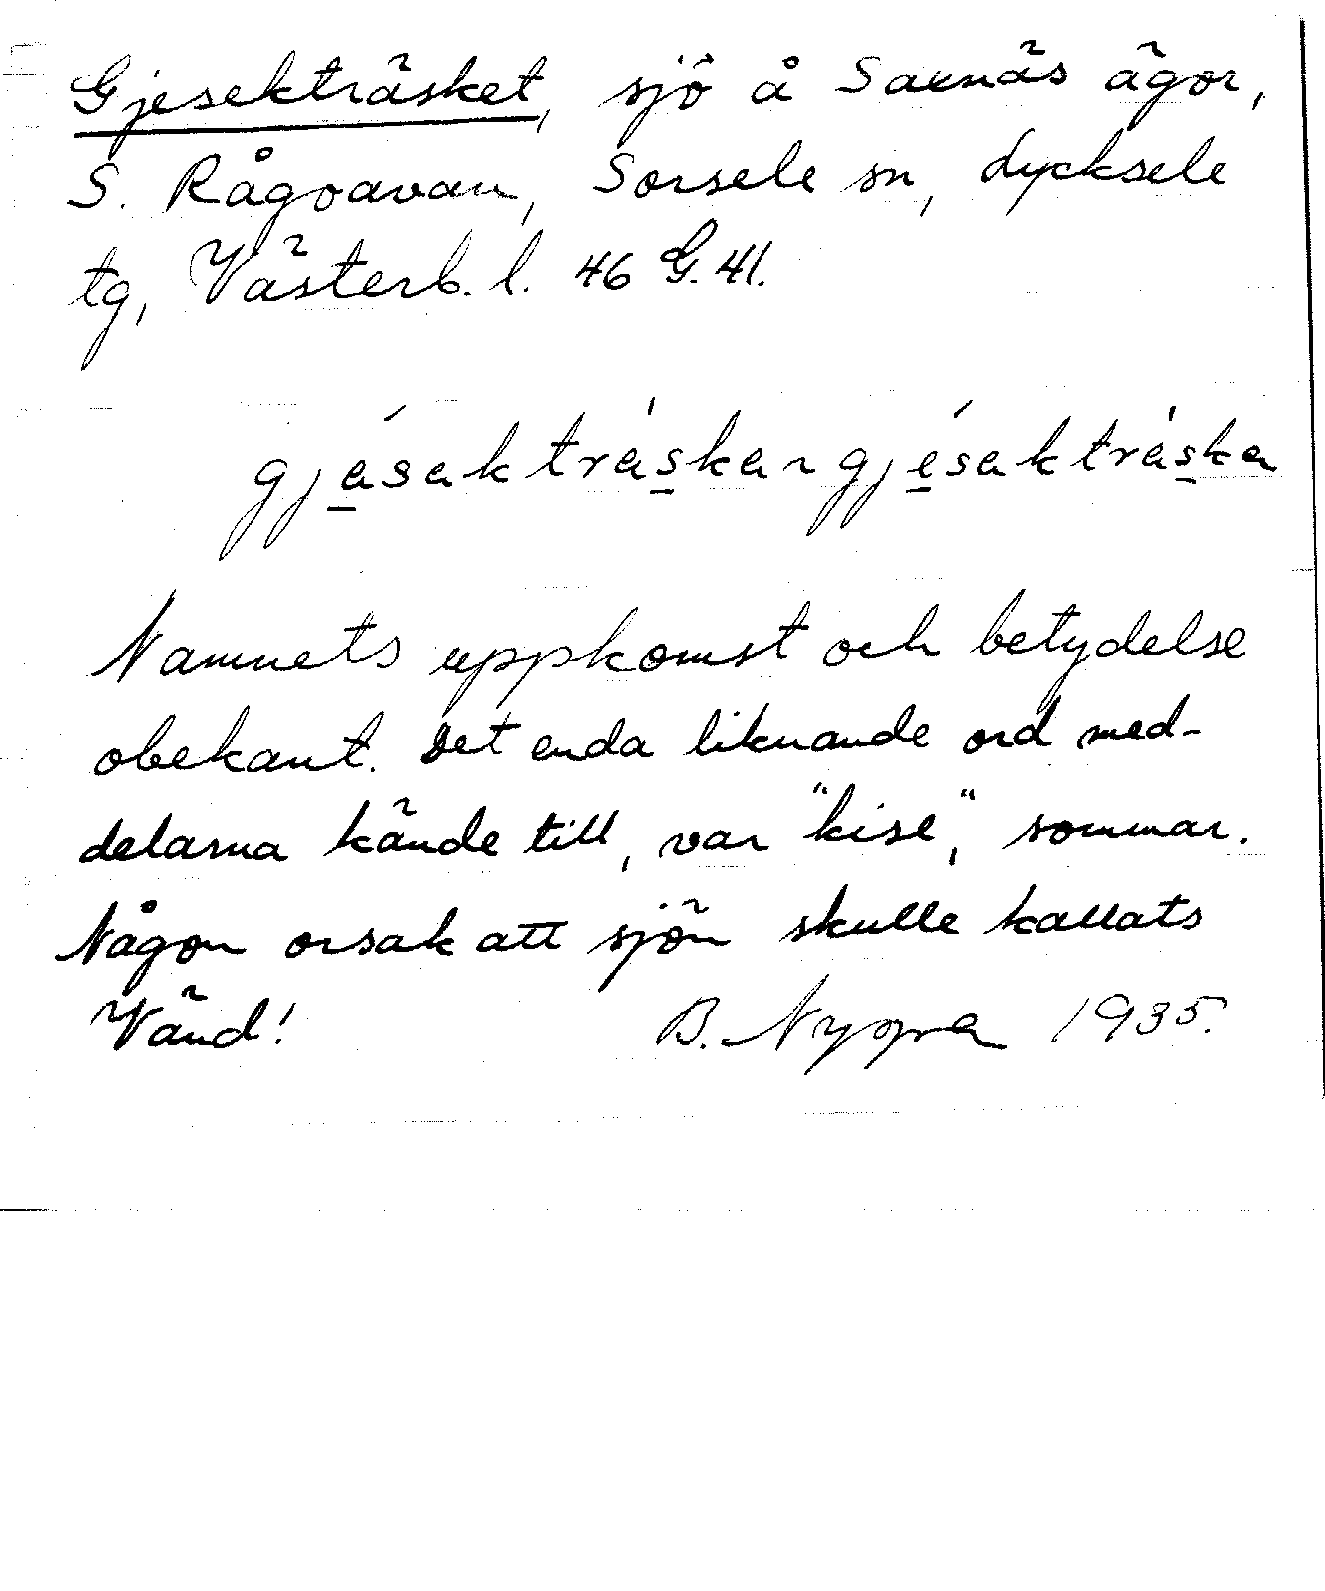 Gjesekträsket, sjö å Saxnäs ägor,
S. Rågoavan, Sorsele sn, Lycksele
tg, Västerb. l. 46 G. 41.
gjásak tráska ~ gjésak tráska
Namnets uppkomst och betydelse
obekant. Det enda liknande ord med-
delarna kände till, var "kise", sommar.
Någon orsak att sjön skulle kallats
Vänd! B. 1935.